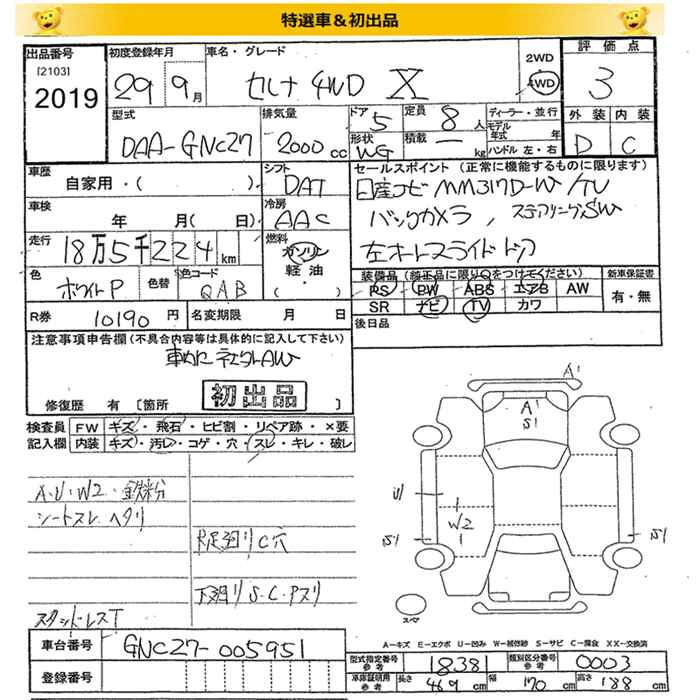 特選車&初出品
出品番号
[2103]
2019
初度登録年月
29 9月
車名・グレード
セレナ 4WD X
2WD
4WD
評価点
3
外装 内装
D C
型式
DAA-GNC27
排気量
2000cc
ドア
5
定員
8人
ディーラー・並行
モデル年式 年
形状
WG
積載
ー kg
ハンドル 左・右
車歴
自家用・( )
シフト
DAT
セールスポイント(正常に機能するものに限ります)
日産ナビ MM317D-W/TV
バックカメラ, ステアリングSW
左オートスライドドア
車検
年 月( 日)
冷房
AAC
走行
18万5千224km
燃料
ガソリン
軽油・
( )
色
ホワイトP
色替
色コード
QAB
装備品(純正品に限り○をつけてください)
PS PW ABS エアB AW
SR ナビ TV カワ
新車保証書
有・無
R券
10190円
名変期限 月 日
後日品
注意事項申告欄(不具合内容等は具体的に記入して下さい)
車内に社外AW
修復歴 有 [箇所 ]
初出品
検査員記入欄
FW キズ・飛石・ヒビ割・リペア跡・×要
内装 キズ・汚レ・コゲ・穴・スレ・キレ・破レ
A・U・W2・鉄粉
シートスレ ヘタリ
足廻りC穴
下廻りS・C・Pスリ
スタッドレスT
A1
A1
S1
U1
W2
1
1
S1
S1
スペア
A-キズ E-エクボ U-凹み W-補修跡 S-サビ C-腐食 XX-交換済
車台番号
GNC27-005951
登録番号
型式指定番号
参考
18381
類別区分番号
参考
0003
車庫証明用
参考
長さ 469cm
幅 170cm
高さ 188cm